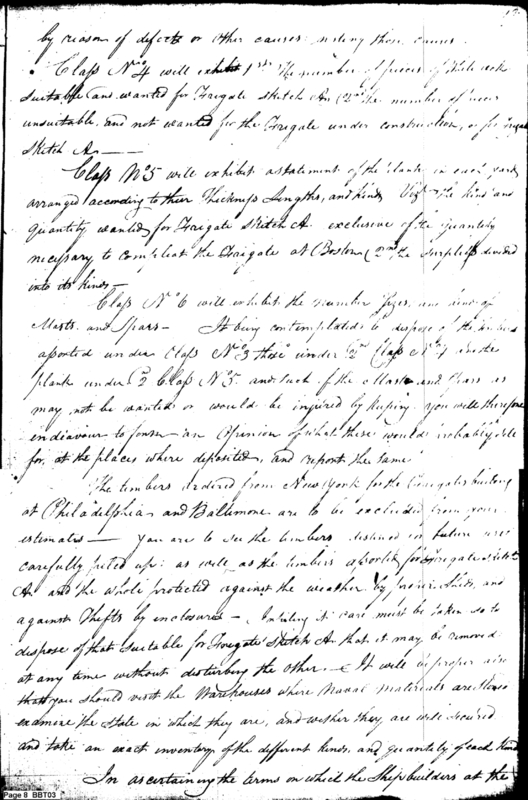 by reason of defects or other causes noting those causes.
Class No 4 will exhibit 1st The number of pieces of
suitable and wanted for Frigate Sketch A. (2nd the number of
unsuitable, and not wanted for the Frigate under construction, or for Frigate
Sketch A. —
Class No 5 will exhibit a statement of the Plank in each yard
arranged according to their Thickness Lengths, and kinds Vizt The kind and
Quantity wanted for Frigate Sketch A. exclusive of the Quantity
necessary to compleat the Frigate at Boston (2nd the Surpluss divided
into its kinds —
Class No 6 will exhibit the number Sizes, and kind of
Masts and Spars — It being contemplated to dispose of the timber
assorted under Class No 3 those under 2nd Class No 4 and the
plank under 2 Class No 5. and such of the Masts and Spars as
may not be wanted or would be injured by keeping you will therefore
endeavour to form an Opinion of what these would probably sell
for, at the places where deposited, and report the same.
The timbers ordered from New York for the Frigates building
at Philadelphia and Baltimore are to be excluded from your
estimates — You are to see the timbers destined for future use
carefully piled up: as well as the timbers assorted for Frigate Sketch
A. and the whole protected against the weather by Sheds, and
against Thefts by inclosures — In piling it care must be taken so to
dispose of that suitable for Frigate Sketch A. that it may be removed
at any time without disturbing the other. — It will be proper also
that you should visit the Warehouses where Naval Materials are stored
examine the state in which they are, and wether they are well secured
and take an exact inventory of the different kinds, and quantity of each kind
In ascertaining the terms on which the Shipbuilders at the
Page 8 BBT03